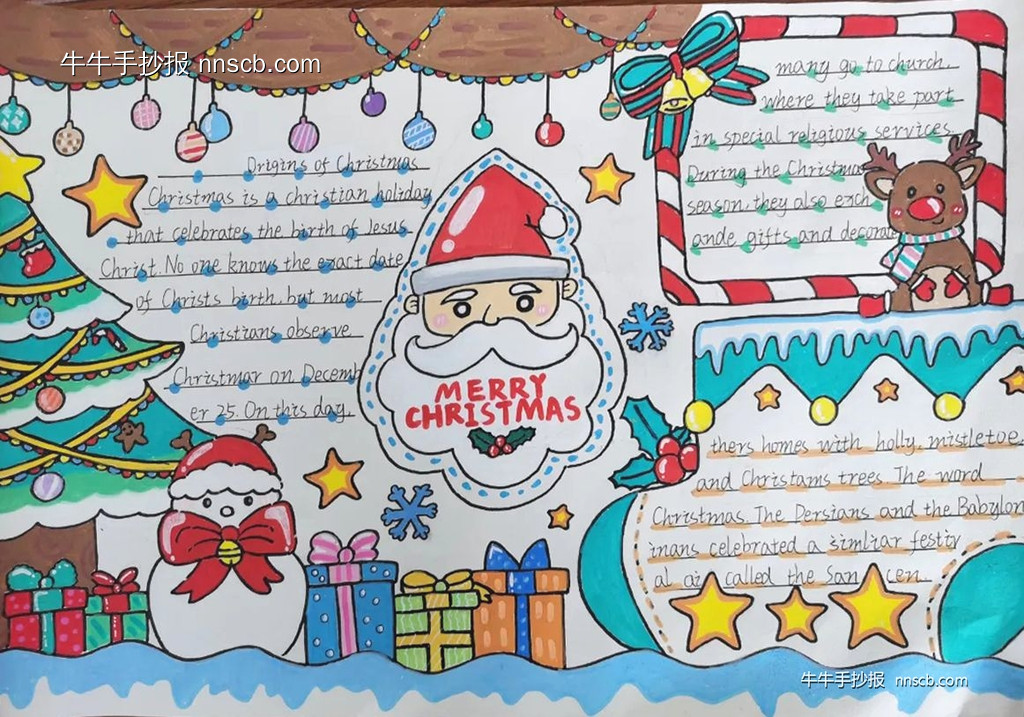 牛牛手抄报 nnscb.com
Origins of Christmas
Christmas is a christian holiday
that celebrates the birth of Jesus
Christ. No one knows the exact date
of Christs birth, but most
Christians observe
Christmar on Decemb
er 25. On this day,
MERRY
CHRISTMAS
many go to church,
where they take part
in special religious services.
During the Christmas
season, they also exch
ande gifts and decora
thers homes with holly, mistletoe,
and Christams trees. The word
Christmas. The Dersians and the Babylon
inans celebrated a simliar festiv
al called the
牛牛手抄报 nnscb.com